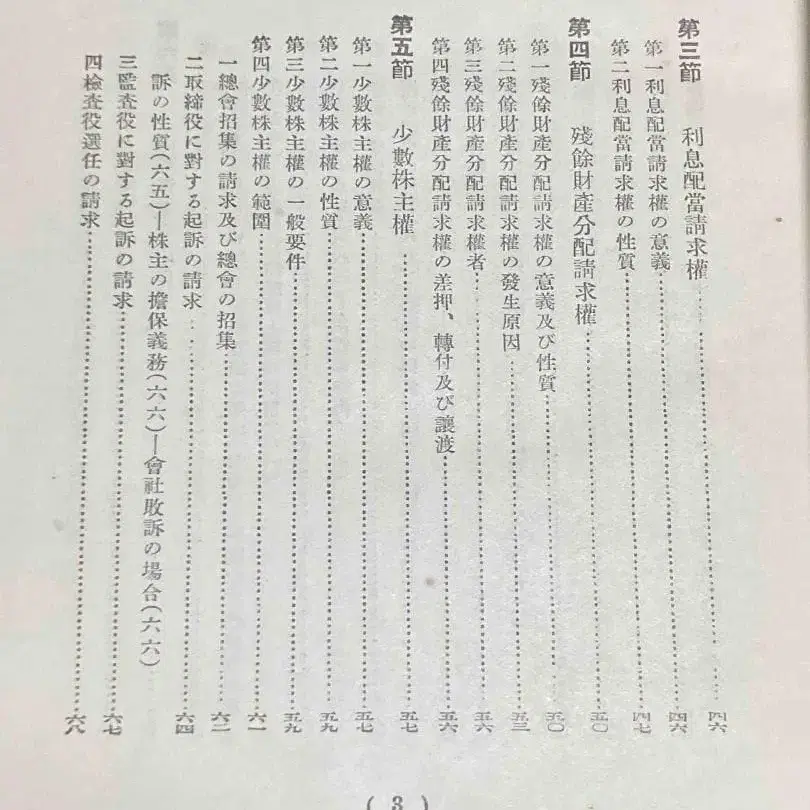 第三節 利息配當請求權……四六
第一利息配當請求權の意義……四六
第二利息配當請求權の性質……四七
第四節 殘餘財產分配請求權……五〇
第一殘餘財產分配請求權の意義及び性質……五〇
第二殘餘財產分配請求權の發生原因……五三
第三殘餘財產分配請求權者……五六
第四殘餘財產分配請求權の差押、轉付及び讓渡……五六
第五節 少數株主權……五七
第一少數株主權の意義……五七
第二少數株主權の性質……五九
第三少數株主權の一般要件……五九
第四少數株主權の範圍……六一
一總會招集の請求及び總會の招集……六二
二取締役に對する起訴の請求……六四
訴の性質(六五)—株主の擔保義務(六六)—會社敗訴の場合(六六)
三監査役に對する起訴の請求……六七
四檢査役選任の請求……六八
( 3 )